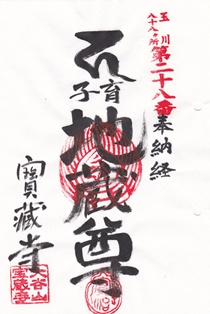 玉川
八十八ヶ所
第二十八番
奉納経
子育
地蔵尊
寳藏寺
大谷山
宝蔵寺